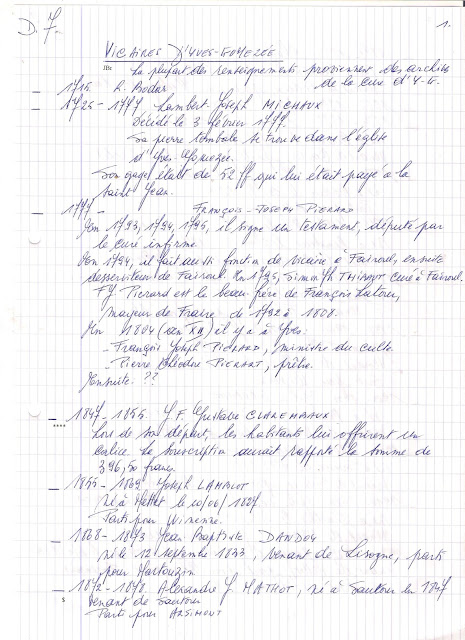 D.7.
1.
VICAIRES D'YVES-GOMEZÉE
La plupart des renseignements proviennent des archives
de la cure d'Y-G.
1715 L. Bodar
1725 - 1777 Lambert Joseph MICHAUX
décédé le 3 février 1777.
Sa pierre tombale se trouve dans l'église
d'Yves-Gomezée.
Son gage était de 52 ff qui lui était payé à la
Saint Jean.
1777 - FRANÇOIS-JOSEPH PIERARD
En 1793, 1794, 1795, il signe un testament, député par
le curé infirme.
En 1794, il fait aussi fonction de vicaire à Fairoul, ensuite
desserviteur de Fairoul. En 1795, Simon Jh THIBAUT curé à Fairoul.
FJ Pierard est le beau frère de François Latour,
mayeur de Fraire de 1792 à 1808.
En 1804 (an XII) il y a à Yves:
- François Joseph PIERARD, ministre du culte
- Pierre PIERART, prêtre.
Ensuite ??
1847 - 1855 J F Gustave CLAREMBAUX
Lors de son départ, les habitants lui offrirent un
calice. La souscription aurait rapporté la somme de
396,50 francs.
1855 - 1869 Joseph LAMBLOT
Né à Mettet le 10/06/1827
Parti pour WINENNE.
1868 - 1873 Jean Baptiste DANDOY
né le 12 septembre 1833, venant de Lisogne, parti
pour
1872 - 1878 Alexandre J. MATHOT, né à Sautour en 1847
venant de Sautour
Parti pour ARSIMONT